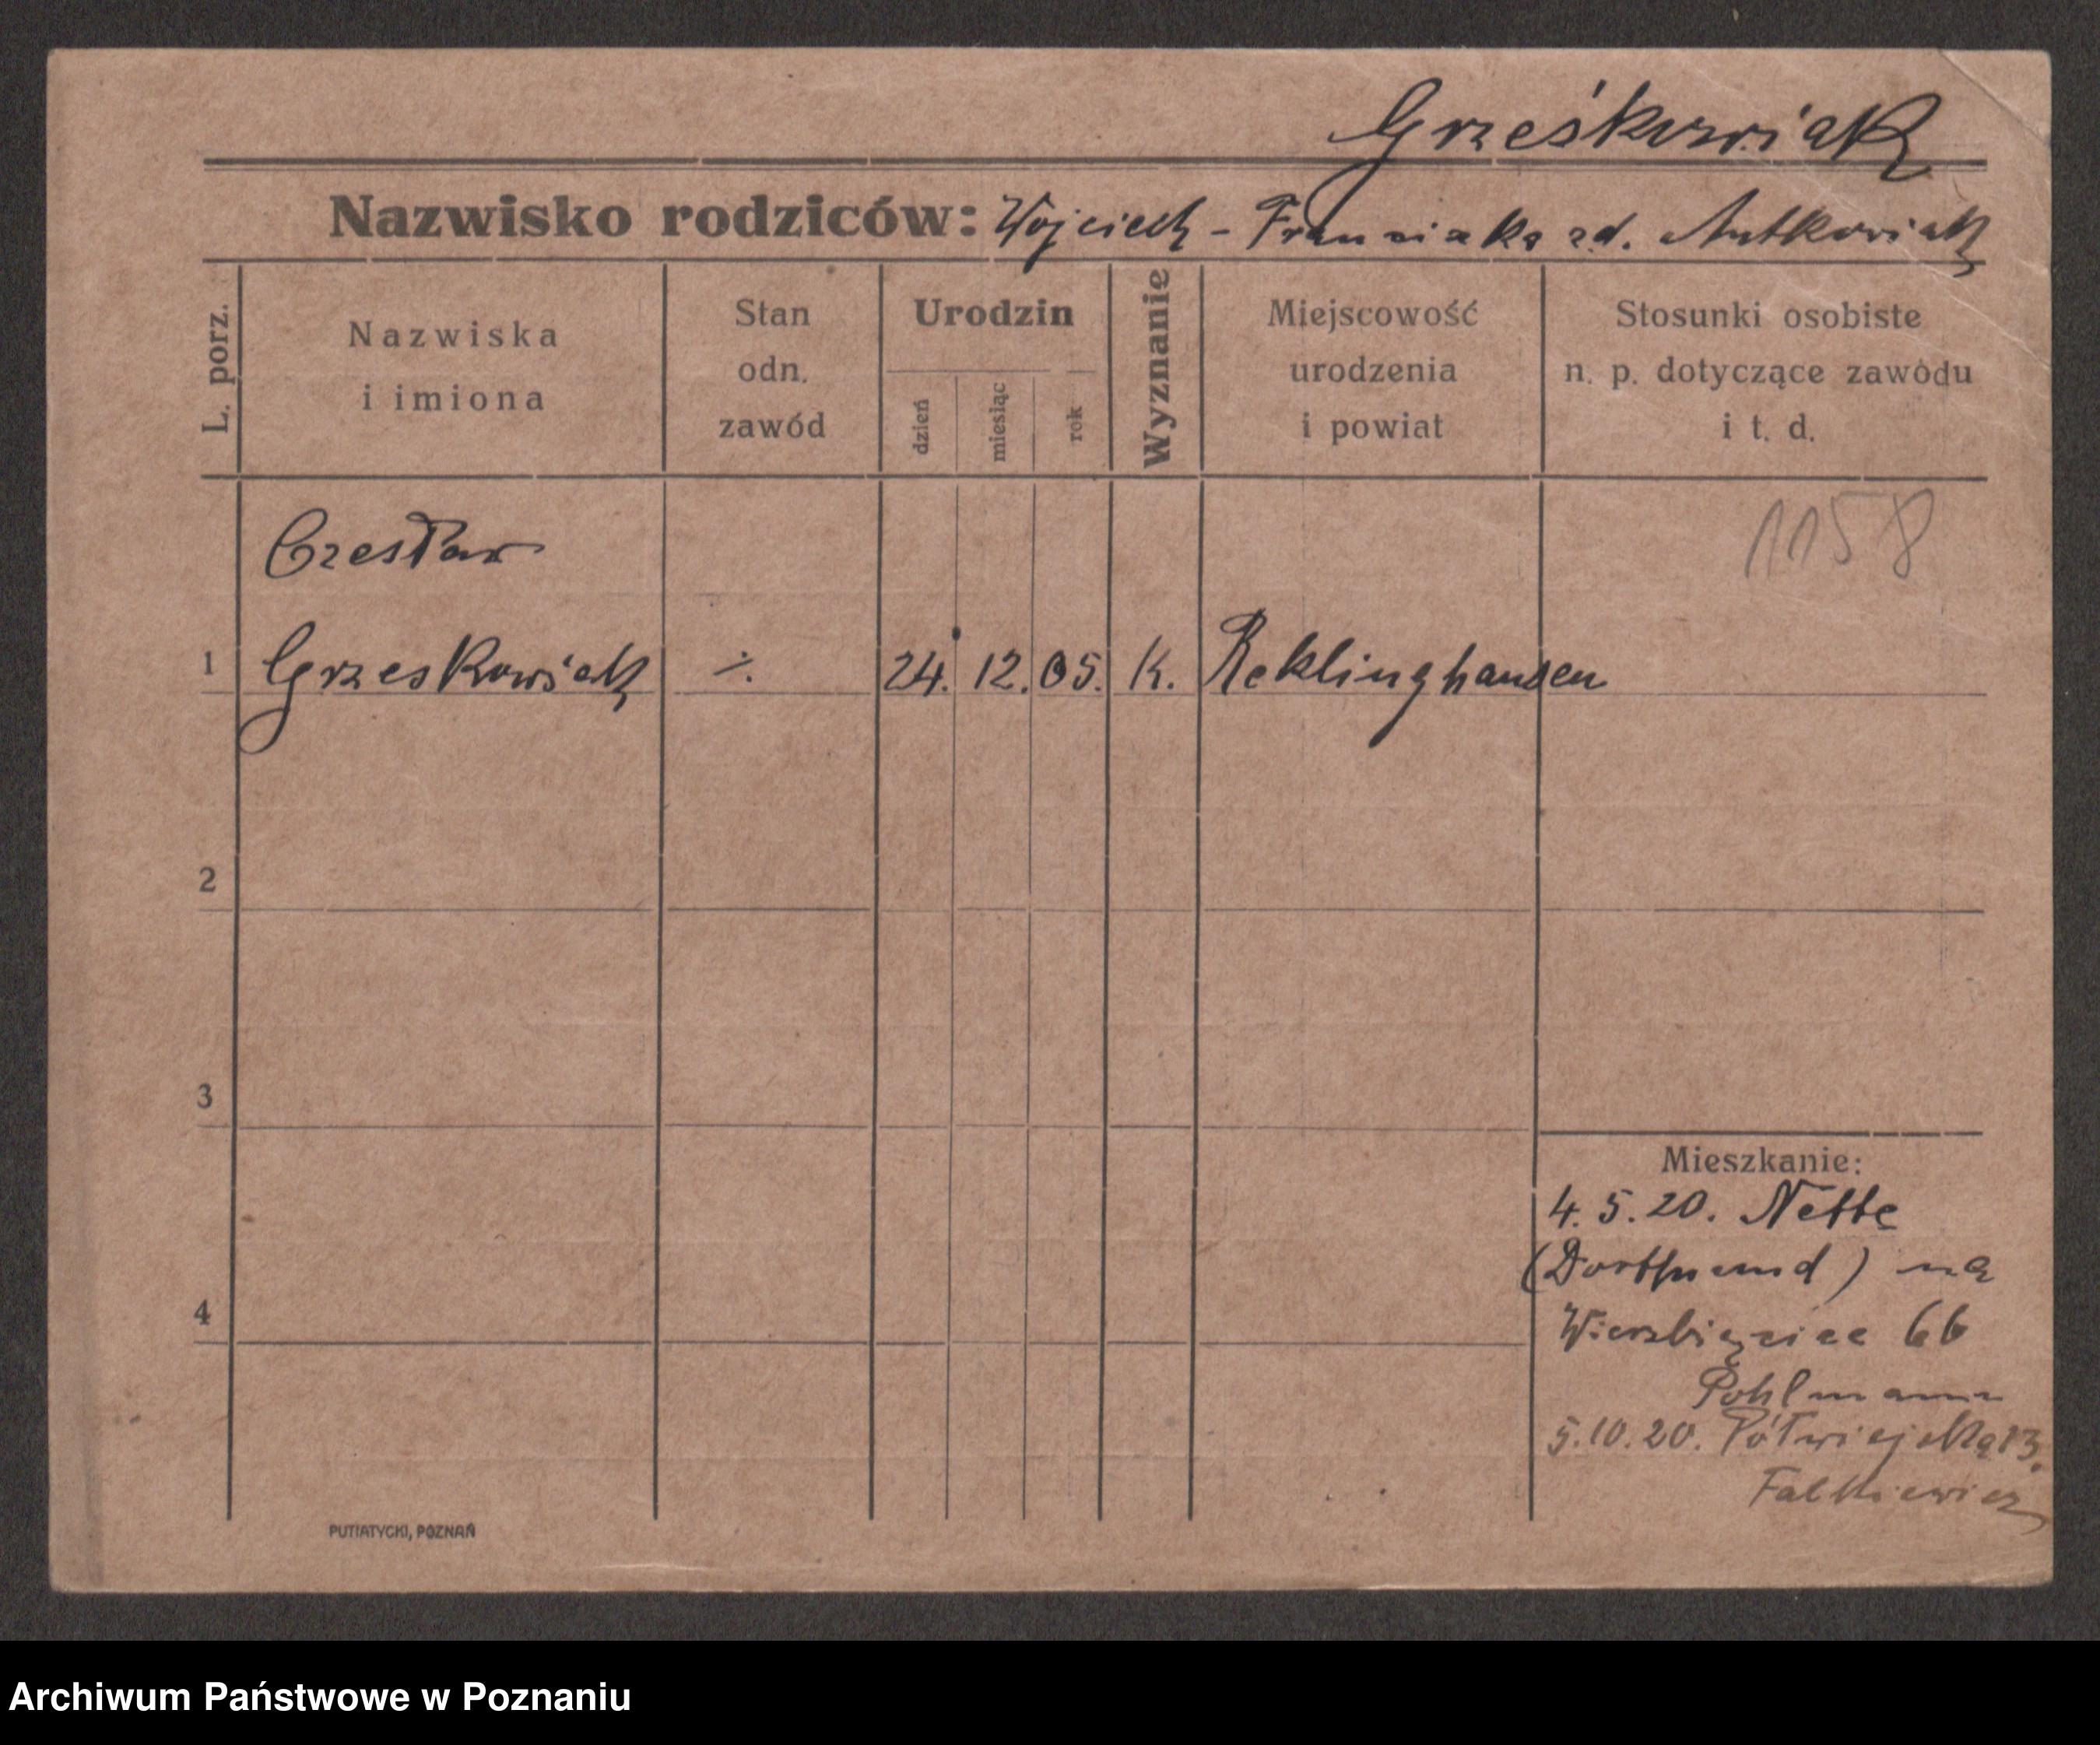 Grześkowiak
Nazwisko rodziców: Wojciech - Franciszka zd. Antkowiak
L. porz.
Nazwiska
i imiona
Stan
odn.
zawód
Urodzin
dzień
miesiąc
rok
Wyznanie
Miejscowość
urodzenia
i powiat
Stosunki osobiste
n. p. dotyczące zawodu
i t. d.
1158
Czesław
1 Grzeskowiak ·/. 24. 12. 05. K. Reklinghausen
2
3
4
Mieszkanie:
4. 5. 20. Nette
(Dortmund) na
Wierzbięcice 66
Pohlmann
5.10.20. Półwiejska 13.
Falkiewicz
PUTIATYCKI, POZNAŃ
Archiwum Państwowe w Poznaniu